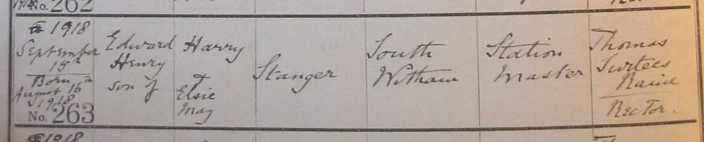 No. 262
1918
September
15th
Born
August 16th
1918
No. 263
Edward
Henry
son of
Harry
&
Elsie
May
Stanger
South
Witham
Station
Master
Thomas
Surtees
Raine
Rector.
1918